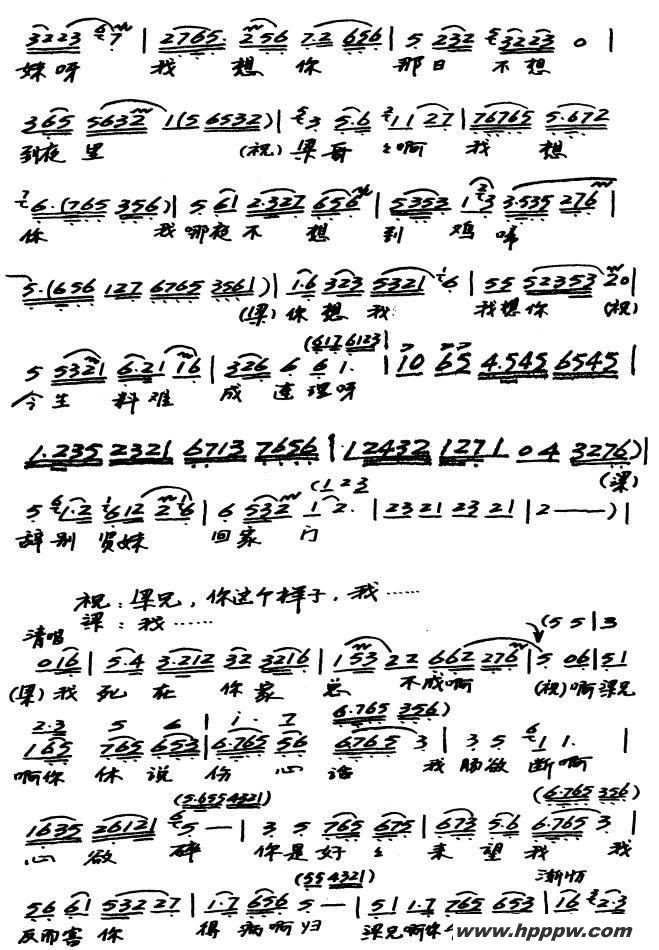 3223 7 | 2765. 256 7.2 656 | 5 232 3223 0 |
妹呀 我 想 你 那日 不想
365 5632 1(5 6532) | 3 5.6 11 27 | 76765 5.672
到夜里 (祝)梁哥々啊 我 想
6.(765 356) | 5 61 2.327 656 | 5353 1 3 3.535 276 |
你 我哪夜不 想 到 鸡啼
5.(656 127 6765 3561) | 1.6 323 5321 6 | 55 52353 20 |
(梁)你想我 我想你 (祝)
(617 6123
5 5321 6.21 16 | 326 6 6 1. | 10 65 4.545 6545 |
今生 料难 成 连理呀
1.235 2321 6713 7656 | 12432 1271 04 3276) |
(梁)
(123
5 1.2 612 2 6 | 6 532 1 2. | 2321 2321 | 2 — — ) |
辞别贤妹 回家门
祝：梁兄，你这个样子，我……
梁：我……
清唱
(5 5 | 3
016 | 5.4 3.212 32 3216 | 153 22 662 276 | 5 06 | 51
(梁)我 死 在 你家 总 不成啊 (祝)啊梁兄
2.3 5 6 | i. 7 6.765 356)
165 765 653 | 6.765 56 6765 3 | 3 5 1 1. |
啊你 休说 伤 心 话 我肠欲断啊
(5.655 4321) (6.765 356)
1635 26121 5 — | 3. 5 765 675 | 673 5.6 6.765 3 |
心 欲 碎 你是好々 来望我 我
渐怊
(55 4321)
56 61 5322 27 | 1.7 656 5 — | 51 1.7 765 653 | 16 2.3
反而害 你 得病啊归 梁兄啊你
www.hppw.com